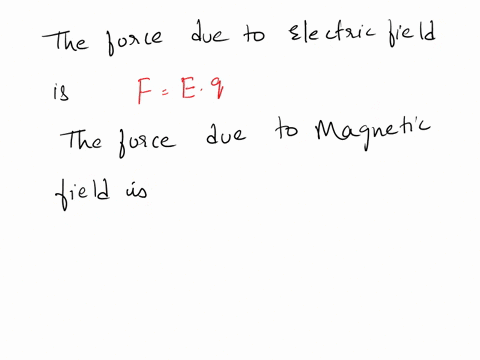 The force due to Electric field
is F = E. q
The force due to Magnetic
field is